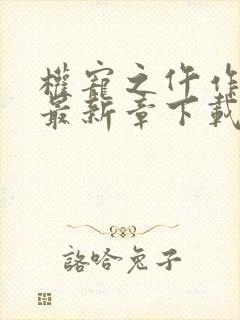 權寵之仵作
最新章下載
詻哈兔子